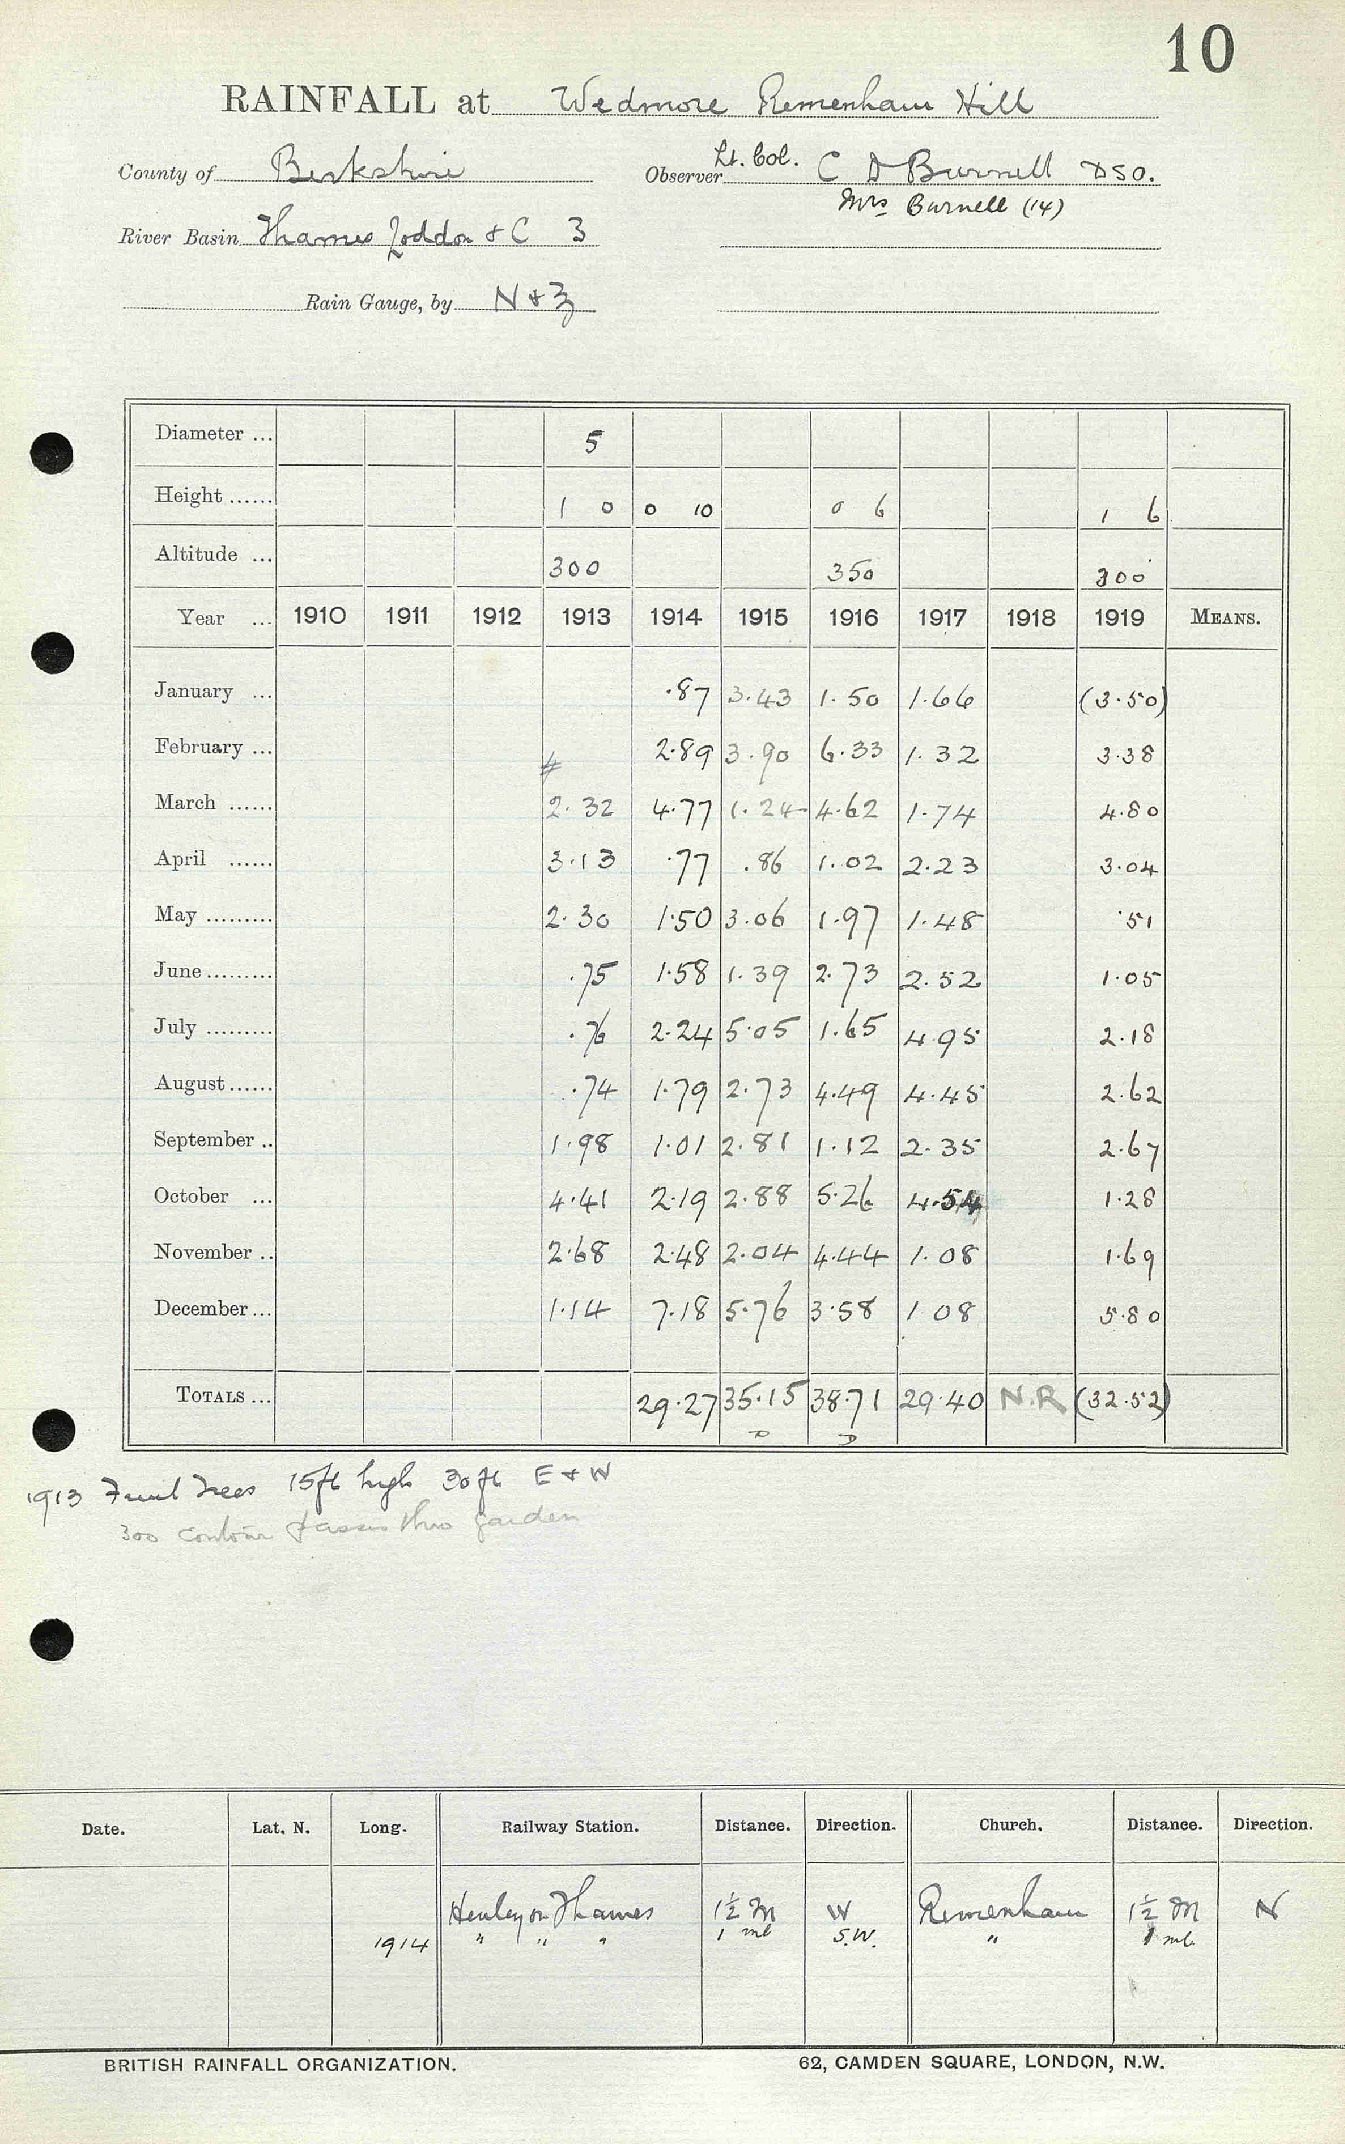 10
RAINFALL at Wedmore Remenham Hill
County of Berkshire Observer Lt. Col. C D Burnell DSO.
Mrs Burnell (14)
River Basin Thames Loddon & C 3
Rain Gauge, by N & Z
Diameter ... 5
Height ...... 1 0 0 10 0 6 1 6
Altitude ... 300 350 300
Year ... 1910 1911 1912 1913 1914 1915 1916 1917 1918 1919 MEANS.
January ... .87 3.43 1.50 1.66 (3.50)
February ... 2.89 3.90 6.33 1.32 3.38
March ...... 2.32 4.77 1.24 4.62 1.74 4.80
April ...... 3.13 .77 .86 1.02 2.23 3.04
May ......... 2.30 1.50 3.06 1.97 1.48 .51
June ......... .75 1.58 1.39 2.73 2.52 1.05
July ......... .76 2.24 5.05 1.65 4.95 2.18
August ...... .74 1.79 2.73 4.49 4.45 2.62
September .. 1.98 1.01 2.81 1.12 2.35 2.67
October ... 4.41 2.19 2.88 5.26 4.54 1.28
November .. 2.68 2.48 2.04 4.44 1.08 1.69
December ... 1.14 7.18 5.76 3.58 1 08 5.80
TOTALS ... 29.27 35.15 38.71 29.40 N.R (32.52)
1913 Fruit Trees 15ft high 30ft E & W
300 contour passes thro garden
Date. Lat. N. Long. Railway Station. Distance. Direction. Church. Distance. Direction.
Henley on Thames 1½ M W Remenham 1½ M N
1914 " " " 1 ml S.W. " 1 ml.
BRITISH RAINFALL ORGANIZATION. 62, CAMDEN SQUARE, LONDON, N.W.